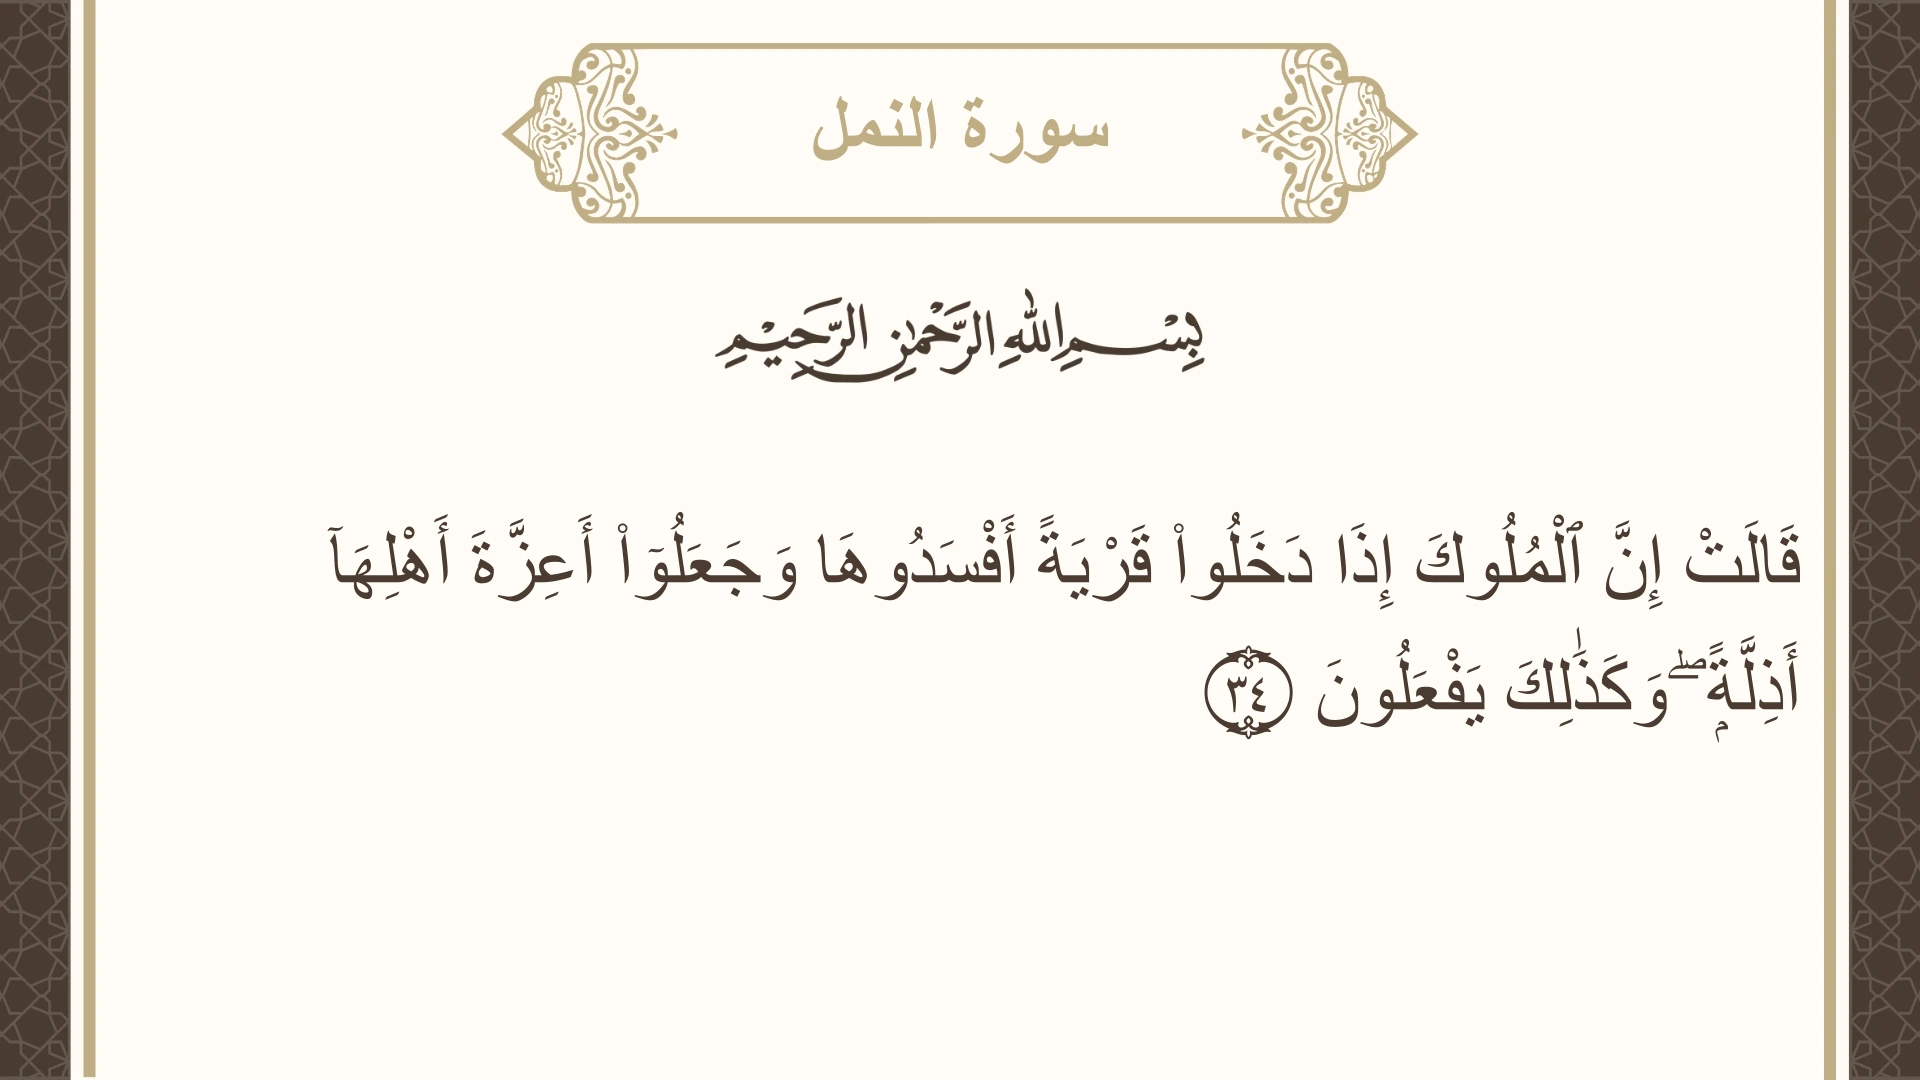 سورة النمل
بِسْمِ اللهِ الرَّحْمٰنِ الرَّحِيْمِ
قَالَتْ إِنَّ ٱلْمُلُوكَ إِذَا دَخَلُوا۟ قَرْيَةً أَفْسَدُوهَا وَجَعَلُوٓا۟ أَعِزَّةَ أَهْلِهَآ
أَذِلَّةًۭ ۖ وَكَذَٰلِكَ يَفْعَلُونَ ٣٤